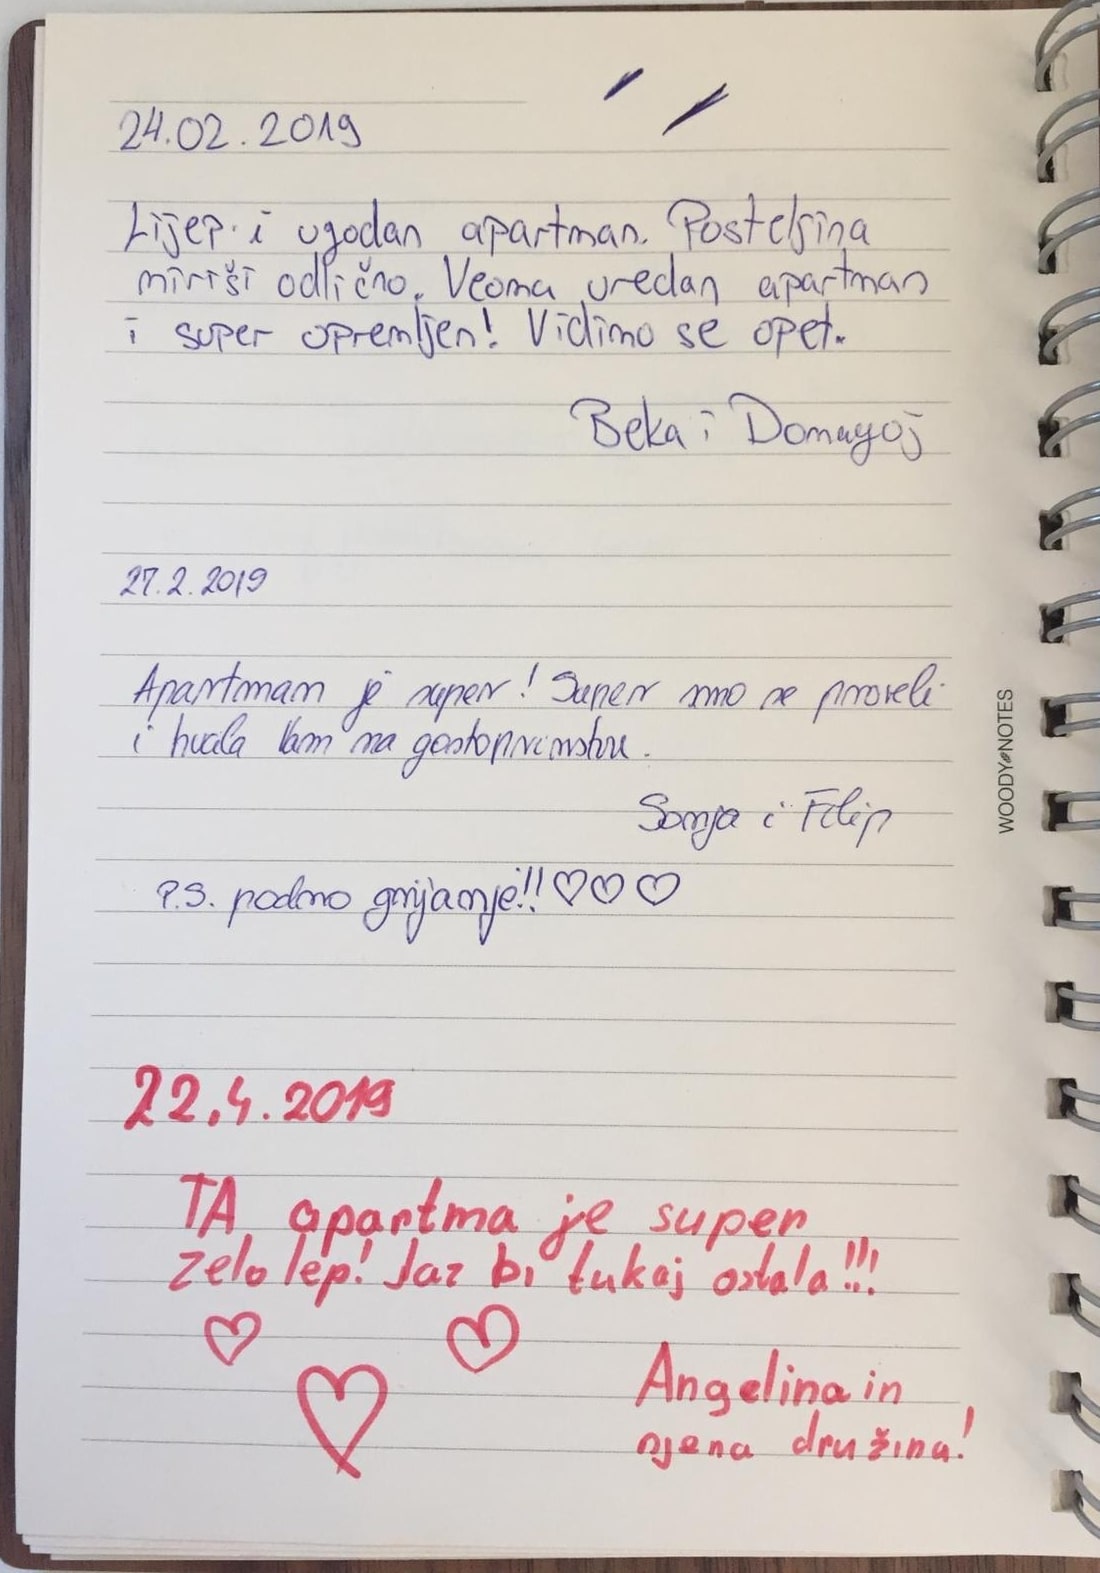 24.02.2019
Lijep i ugodan apartman. Posteljina
miriši odlično. Veoma uredan apartman
i super opremljen! Vidimo se opet.
Beka i Domagoj
27.2.2019
Apartmam je super! Super smo se proveli
i hvala Vam na gostoprimstvu.
Sonja i Filip
P.S. podno grijanje!!♡♡♡
22.4.2019
TA apartma je super
zelo lep! Jaz bi tukaj ostala!!!
Angelina in
njena družina!
WOODY NOTES